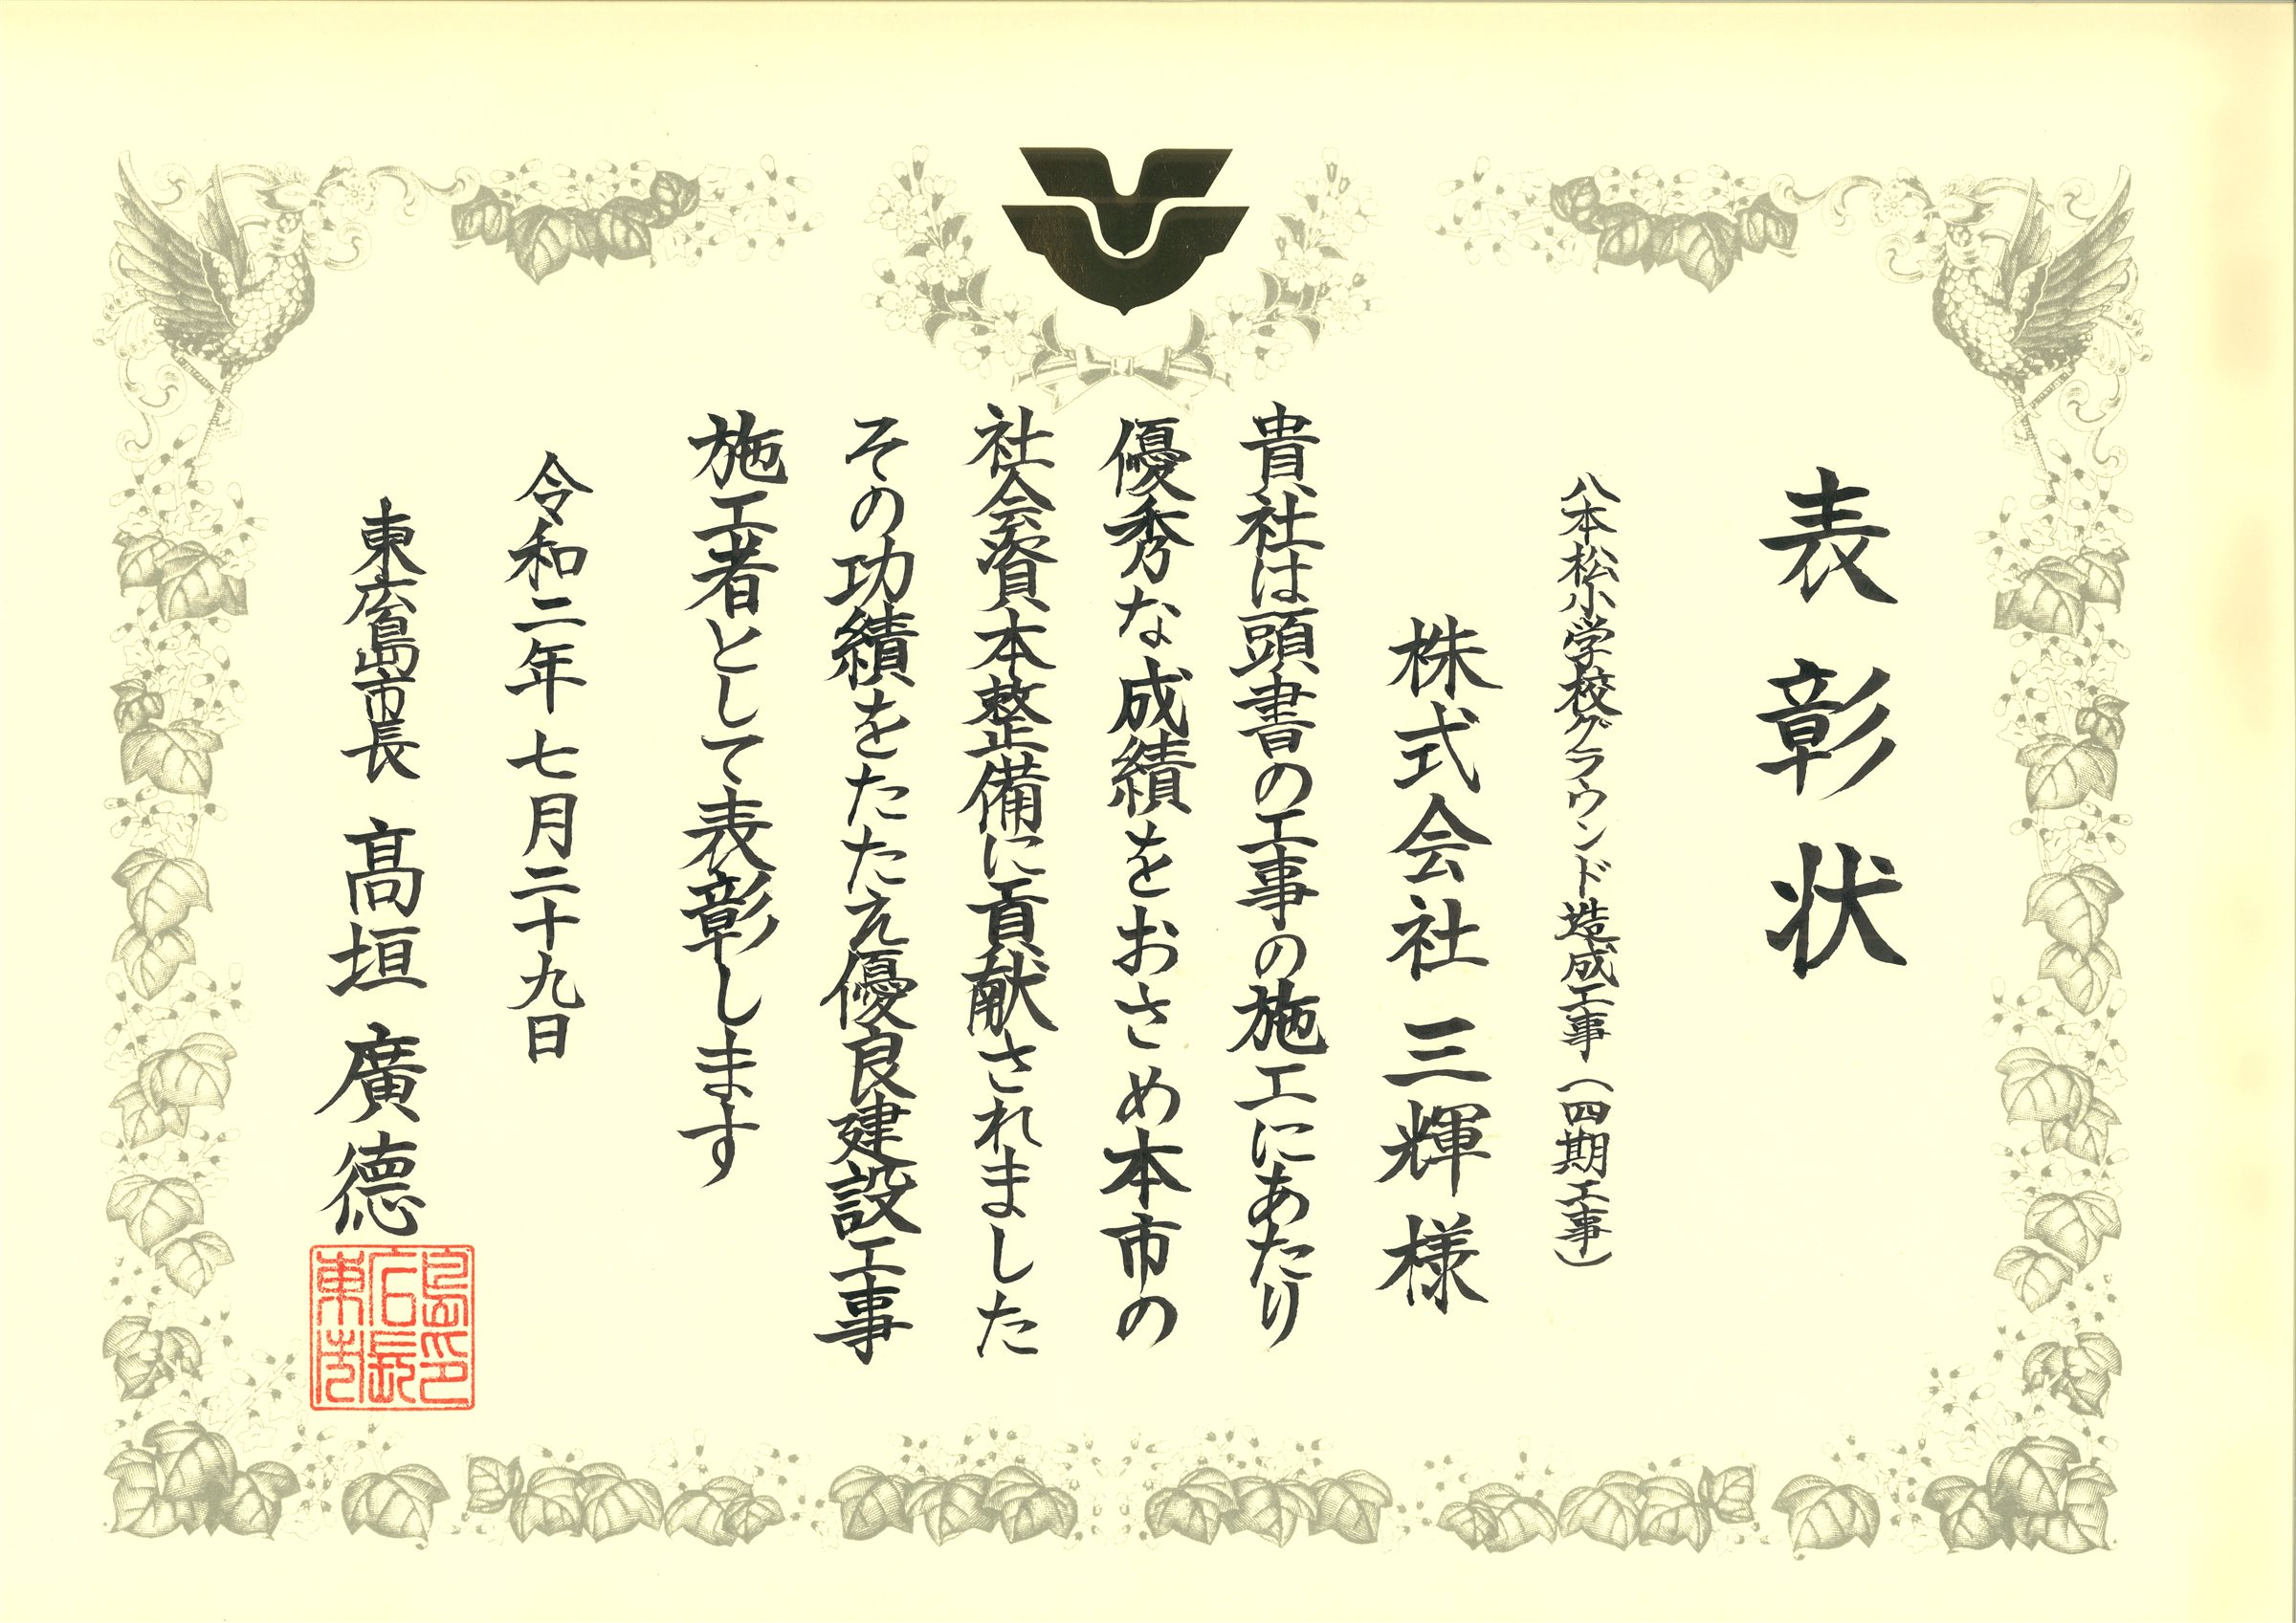 表彰状
八本松小学校グラウンド造成工事（四期工事）
株式会社 三輝 様
貴社は頭書の工事の施工にあたり
優秀な成績をおさめ本市の
社会資本整備に貢献されました
その功績をたたえ優良建設工事
施工者として表彰します
令和二年七月二十九日
東広島市長 髙垣廣德
東広島市長印